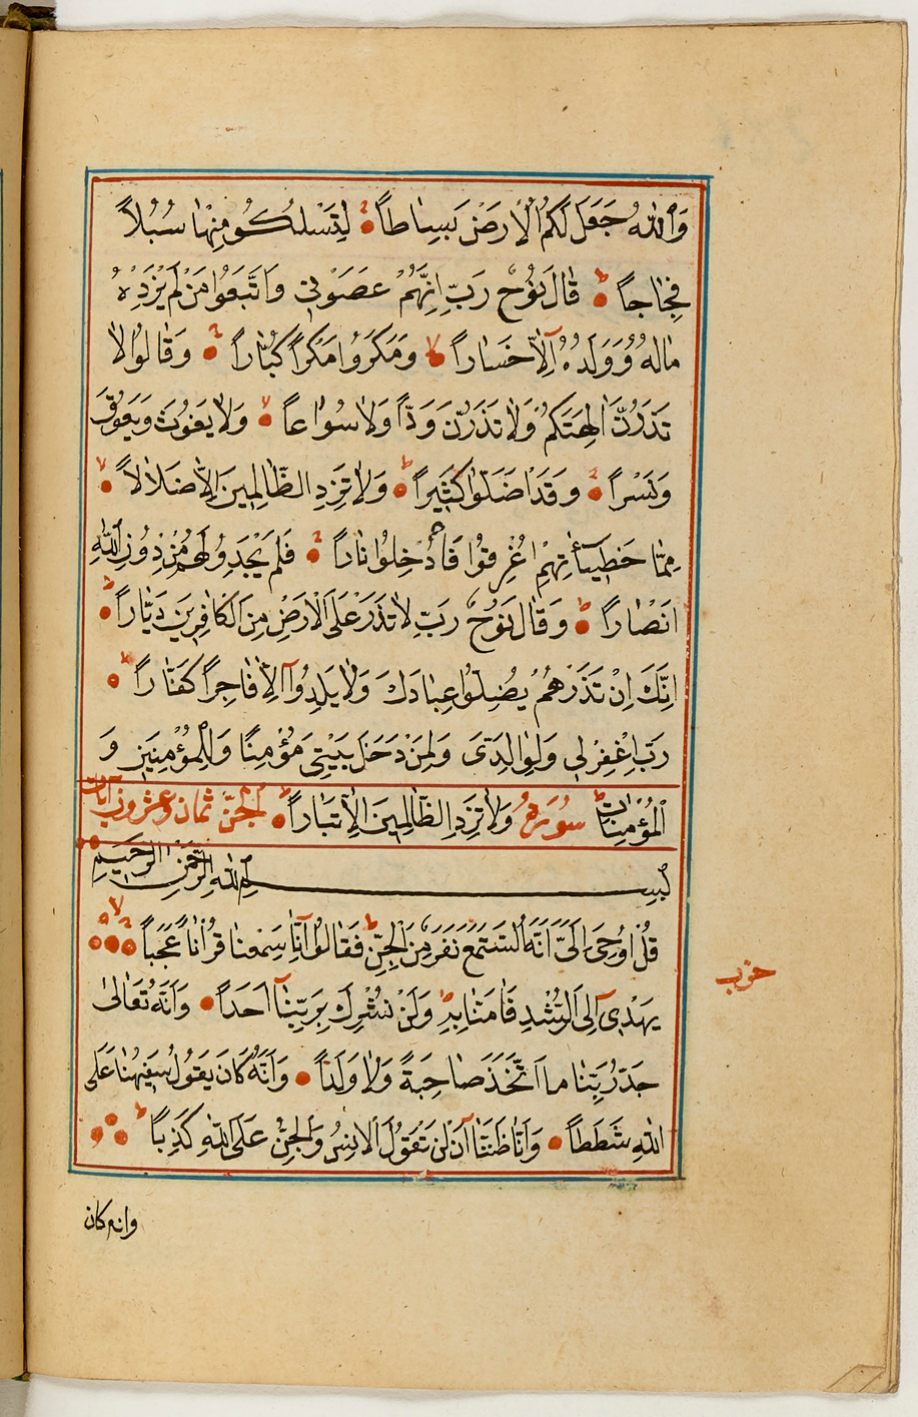 وَاللّٰهُ جَعَلَ لَكُمُ الْاَرْضَ بَسِاطاً لِتَسْلُكُو مِنْهَا سُبُلاً
فِجَاجاً قَالَ نُوْحٌ رَبِّ اِنَّهُمْ عَصَوْنِي وَاتَّبَعُوا مَنْ لَمْ يَزِدْهُ
مَالُهُ وَوَلَدُهُ اِلَّا خَسَاراً وَمَكَرُوا مَكْراً كُبَّاراً وَقَالُوا لَا
تَذَرُنَّ اٰلِهَتَكُمْ وَلَا تَذَرُنَّ وَدّاً وَلَا سُوَاعاً وَلَا يَغُوثَ وَيَعُوقَ
وَنَسْراً وَقَدْ اَضَلُّوا كَثِيراً وَلَا تَزِدِ الظَّالِمِينَ اِلَّا ضَلَالاً
مِمَّا خَطِيئاٰتِهِمْ اُغْرِقُوا فَاُدْخِلُوا نَاراً فَلَمْ يَجِدُو لَهُمْ مِنْ دُونِ اللّٰهِ
اَنْصَاراً وَقَالَ نُوْحٌ رَبِّ لَا تَذَرْ عَلَى الْاَرْضِ مِنَ الْكَافِرِينَ دَيَّاراً
اِنَّكَ اِنْ تَذَرْهُمْ يُضِلُّوا عِبَادَكَ وَلَا يَلِدُوا اِلَّا فَاجِراً كَفَّاراً
رَبِّ اغْفِرْلِي وَلِوَالِدَىَّ وَلِمَنْ دَخَلَ بَيْتِىَ مُؤْمِنًا وَلِلْمُؤْمِنِينَ وَ
الْمُؤْمِنَاتِ سُورَةُ وَلَا تَزِدِ الظَّالِمِينَ اِلَّا تَبَاراً الْجِنِّ ثمان وعشرون آيات
بِسْمِ اللّٰهِ الرَّحْمٰنِ الرَّحِيمِ
قُلْ اُوحِىَ اِلَىَّ اَنَّهُ اسْتَمَعَ نَفَرٌ مِنَ الْجِنِّ فَقَالُوا اِنَّا سَمِعْنَا قُرْاٰناً عَجَباً
يَهْدِى اِلَى الرُّشْدِ فَاٰمَنَّا بِهِ وَلَنْ نُشْرِكَ بِرَبِّنَا اَحَداً وَاَنَّهُ تَعَالٰى
جَدُّ رَبِّنَا مَا اتَّخَذَ صَاحِبَةً وَلَا وَلَداً وَاَنَّهُ كَانَ يَقُولُ سَفِيهُنَا عَلَى
اللّٰهِ شَطَطاً وَاَنَّا ظَنَنَّا اَنْ لَنْ تَقُولَ الْاِنْسُ وَالْجِنُّ عَلَى اللّٰهِ كَذِباً
حزب
وانه كان